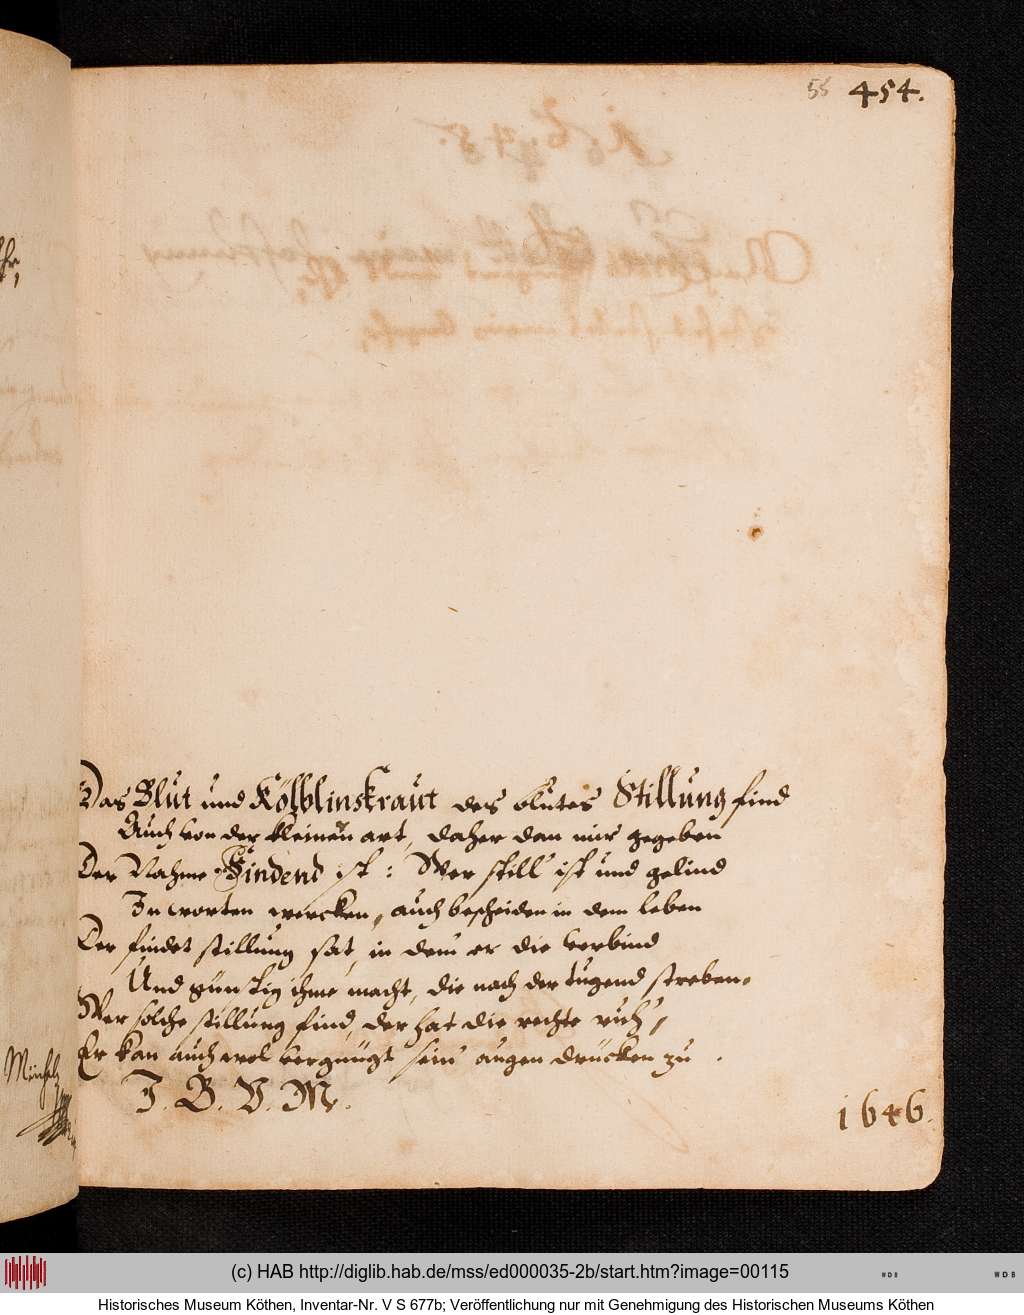 55 454.
Das Blut und Kölblinskraut des blutes Stillung find
Auch von der kleinen art, daher dan mir gegeben
Der Nahme Findend ist: Wer still ist und gelind
In worten wercken, auch bescheiden in dem leben
Der findet stillung sat, in dem er die verbind
Und günstig ihme macht, die nach der tugend streben.
Wer solche stillung find, der hat die rechte ruh,
Er kan auch wol vergnügt sein augen drücken zu.
J. B. V. M.
1646.
(c) HAB http://diglib.hab.de/mss/ed000035-2b/start.htm?image=00115
WDB
WDB
Historisches Museum Köthen, Inventar-Nr. V S 677b; Veröffentlichung nur mit Genehmigung des Historischen Museums Köthen